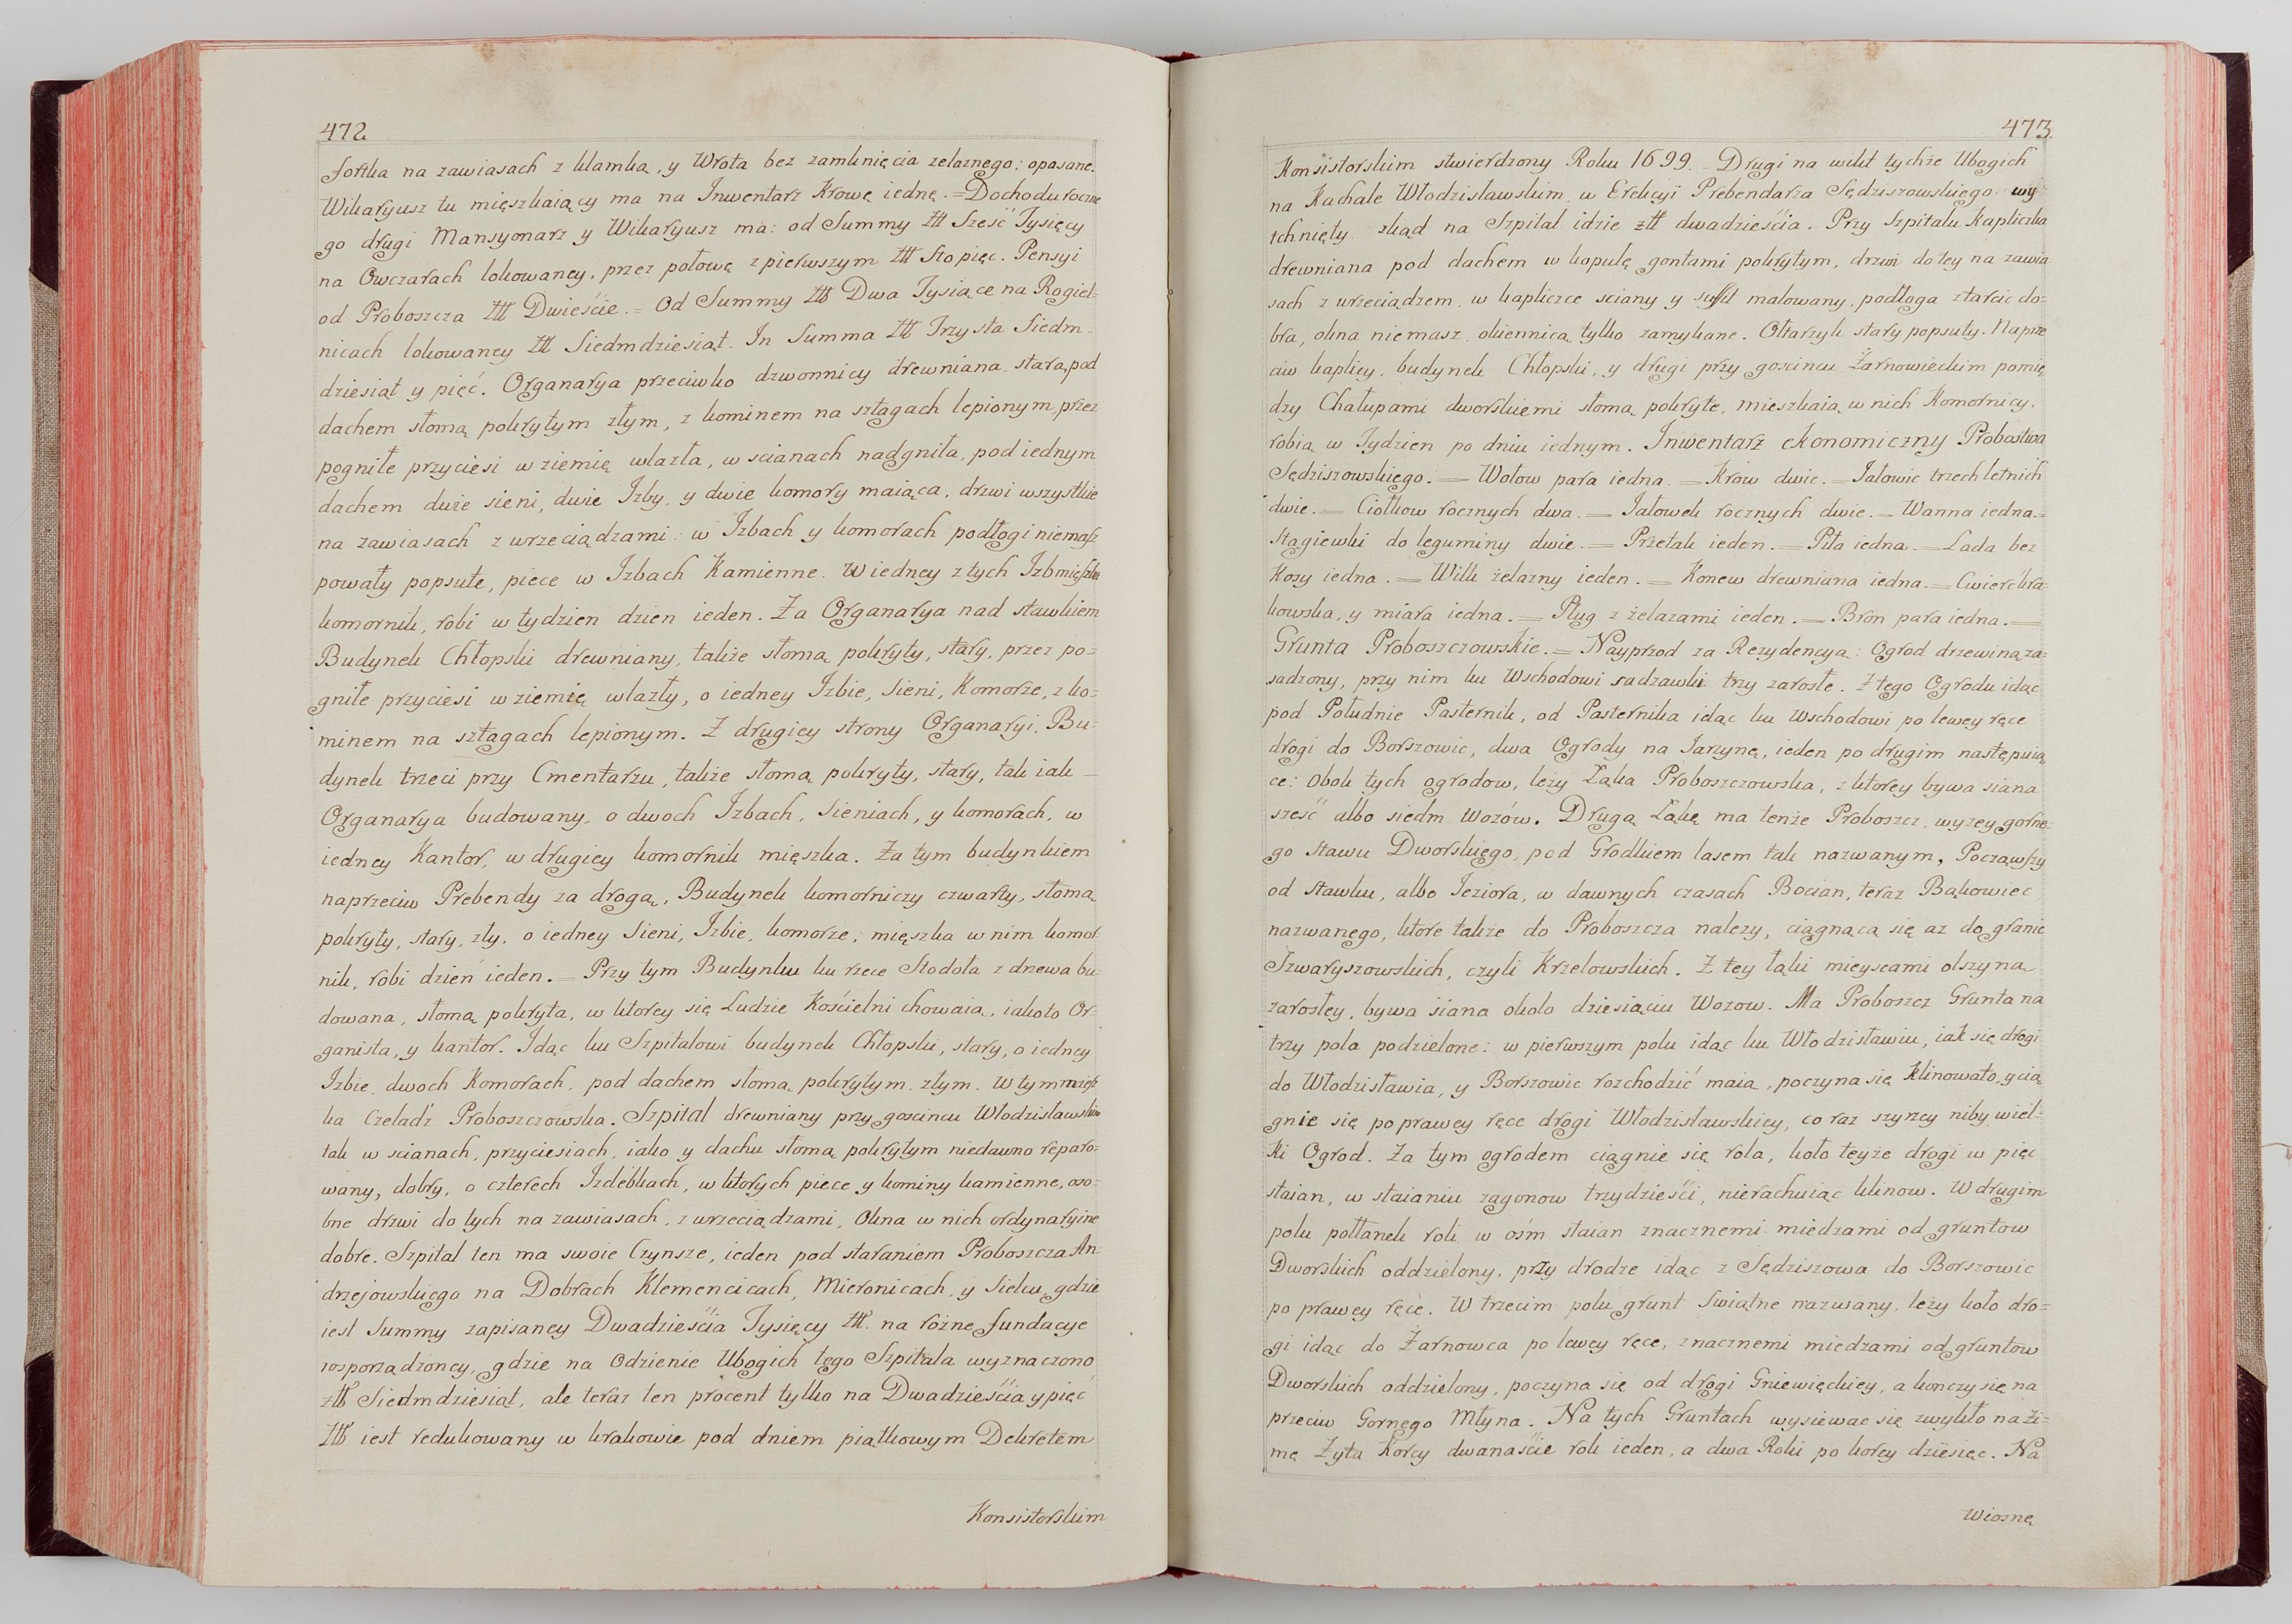 472
fortka na zawiasach z klamką, y Wrota bez zamknięcia zelaznego: opasane.
Wikaryusz tu mięszkaiący ma na Inwentarz Krowę iednę. = Dochodu roczne
go drugi Mansyonarz y Wikaryusz ma: od Summy Złł Sześć Tysięcy
na Owczarach lokowaney, przez połowę z pierwszym Złł Sto pięc. Pensyi
od Proboszcza Złł Dwieście. = Od Summy Złł Dwa Tysiące na Rogiel=
nicach lokowaney Złł Siedmdziesiąt. In Summa Złł Trzysta Siedm=
dziesiąt y pięć. Organarya przeciwko dzwonnicy drewniana stara, pod
dachem słomą pokrytym złym, z kominem na sztagach lepionym, przez
pogniłe przyciesi w ziemię wlazła, w scianach nadgniła, pod iednym
dachem dwie sieni, dwie Izby, y dwie komory maiąca, drzwi wszystkie
na zawiasach z wrzeciądzami: w Izbach y komorach podłogi niemasz
powały popsute, piece w Izbach Kamienne. W iedney z tych Izb mięszka
komornik, robi w tydzien dzien ieden. Za Organarya nad stawkiem
Budynek Chłopski drewniany, także słomą pokryty, stary, przez po=
gniłe przyciesi w ziemię wlazły, o iedney Izbie, Sieni, Komorze, z ko=
minem na sztagach lepionym. Z drugiey strony Organaryi, Bu=
dynek trzeci przy Cmentarzu, także słomą pokryty, stary, tak iak
Organarya budowany, o dwoch Izbach, Sieniach, y komorach, w
iedney Kantor, w drugiey komornik mięszka. Za tym budynkiem
naprzeciw Prebendy za drogą, Budynek komorniczy czwarty, słomą
pokryty, stary, zły, o iedney Sieni, Izbie, komorze; mięszka w nim komor
nik, robi dzień ieden. = Przy tym Budynku ku rzece Stodoła z drzewa bu=
dowana, słomą pokryta, w ktorey się Ludzie Kościelni chowaią, iakoto Or=
ganista, y kantor. Idąc ku Szpitalowi budynek Chłopski, stary, o iedney
Izbie, dwoch Komorach, pod dachem słomą pokrytym, złym. W tym miesz
ka Czeladź Proboszczowska. Szpital drewniany przy goscincu Włodzisławskim
tak w scianach, przyciesiach, iako y dachu słomą pokrytym niedawno reparo=
wany, dobry, o czterech Izdebkach, w ktorych piece y kominy kamienne, oso=
bne drzwi do tych na zawiasach, z wrzeciądzami, Okna w nich ordynaryine
dobre. Szpital ten ma swoie Czynsze, ieden pod staraniem Proboszcza An=
drzejowskiego na Dobrach Klemencicach, Mieronicach, y Sielcu, gdzie
iest Summy zapisaney Dwadzieścia Tysięcy Złł. na rózne fundacye
rosporządzoney, gdzie na Odzienie Ubogich tego Szpitala wyznaczono
złł Siedmdziesiąt, ale teraz ten procent tylko na Dwadzieścia y pięć
Złł iest redukowany w krakowie pod dniem piątkowym Dekretem
Konsistorskim
473
Konsistorskim stwierdzony Roku 1699. Drugi na wikt tychże Ubogich
na Kachale Włodzisławskim, w Erekcyi Prebendarza Sędziszowskiego wy
tchnięty, skąd na Szpital idzie złł dwadzieścia. Przy Szpitalu Kapliczka
drewniana pod dachem w kopułę gontami pokrytym, drzwi do tey na zawia
sach z wrzeciądzem, w kapliczce sciany y sufit malowany, podłoga z tarcic do=
bra, okna niemasz, okiennicą tylko zamykane. Ołtarzyk stary popsuty. Naprze
ciw kaplicy, budynek Chłopski, y drugi przy goscincu Żarnowieckim pomię
dzy Chałupami dworskiemi słomą pokryte, mieszkaią w nich Komornicy,
robią w Tydzien po dniu iednym. Inwentarz ekonomiczny Probostwa
Sędziszowskiego. = Wołow para iedna. = Krow dwie. = Jałowic trzechletnich
dwie. = Ciołkow rocznych dwa. = Jałowek rocznych dwie. = Wanna iedna.=
Stągiewki do leguminy dwie. = Przetak ieden. = Piła iedna. = Lada bez
Kosy iedna. = Wilk żelazny ieden. = Konew drewniana iedna. = Cwierć kra=
kowska, y miara iedna. = Pług z żelazami ieden. = Bron para iedna. =
Grunta Proboszczowskie. = Nayprzod za Rezydencyą: Ogrod drzewiną za=
sadzony, przy nim ku Wschodowi sadzawki trzy zarosłe. Z tego Ogrodu idąc
pod Południe Pasternik, od Pasternika idąc ku Wschodowi po lewey ręce
drogi do Borszowic, dwa Ogrody na Jarzynę, ieden po drugim następuią
ce: obok tych ogrodow, leży Łąka Proboszczowska, z ktorey bywa siana
sześć albo siedm Wozów. Drugą Łąkę ma tenże Proboszcz, wyzey gorne=
go Stawu Dworskiego, pod Grodkiem lasem tak nazwanym, Począwszy
od Stawku, albo Jeziora, w dawnych czasach Bocian, teraz Bąkowiec
nazwanego, ktore także do Proboszcza nalezy, ciągnącą się az do granic
Szwaryszowskich, czyli Krzelowskich. Z tey łąki mieyscami olszyną
zarosłey, bywa siana około dziesiąciu Wozow. Ma Proboszcz Grunta na
trzy pola podzielone: w pierwszym polu idąc ku Włodzisławiu, iak się drogi
do Włodzisławia, y Borszowic rozchodzić maią, poczyna się klinowato, y cią
gnie się po prawey ręce drogi Włodzisławskiey, co raz szyrzey niby wiel=
ki Ogrod. Za tym ogrodem ciągnie się rola, koło teyże drogi w pięc
staian, w staianiu zagonow trzydzieści, nierachuiąc klinow. W drugim
polu połłanek roli w ośm staian znacznemi miedzami od gruntow
Dworskich oddzielony, przy drodze idąc z Sędziszowa do Borszowic
po prawey ręce. W trzecim polu grunt Swiątne nazwany, leży koło dro=
gi idąc do Żarnowca po lewey ręce, znacznemi miedzami od gruntow
Dworskich oddzielony, poczyna się od drogi Gniewięckiey, a konczy się na
przeciw Gornego Młyna. Na tych Gruntach wysiewac się zwykło na Zi=
mę Żyta Korcy dwanaście rok ieden, a dwa Roki po korcy dziesięc. Na
Wiosnę